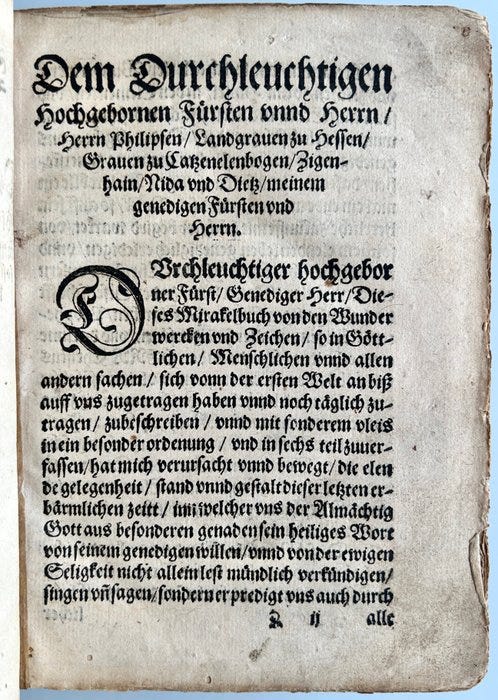 Dem Durchleuchtigen
Hochgebornen Fürsten vnnd Herrn/
Herrn Philipsen/Landgrauen zu Hessen/
Grauen zu Catzenelenbogen/Zigen-
hain/Nida vnd Dietz/meinem
genedigen Fürsten vnd
Herrn.
DVrchleuchtiger hochgebor
ner Fürst/Genediger Herr/Die-
ses Mirakelbuch von den Wunder
wercken vnd Zeichen/so in Gött-
lichen/Menschlichen vnnd allen
andern sachen/sich vonn der ersten Welt an biß
auff vns zugetragen haben vnnd noch täglich zu-
tragen/zubeschreiben/vnnd mit sonderem vleis
in ein besonder ordenung/vnd in sechs teil zuuer-
fassen/hat mich verursacht vnnd bewegt/die elen
de gelegenheit/stand vnnd gestalt dieser letzten er-
bärmlichen zeitt/inn welcher vns der Almächtig
Gott aus besonderen genaden sein heiliges Wort
von seinem genedigen willen/vnnd von der ewigen
Seligkeit nicht allein lest mündlich verkündigen/
singen vñ sagen/sondern er predigt vns auch durch
ij alle